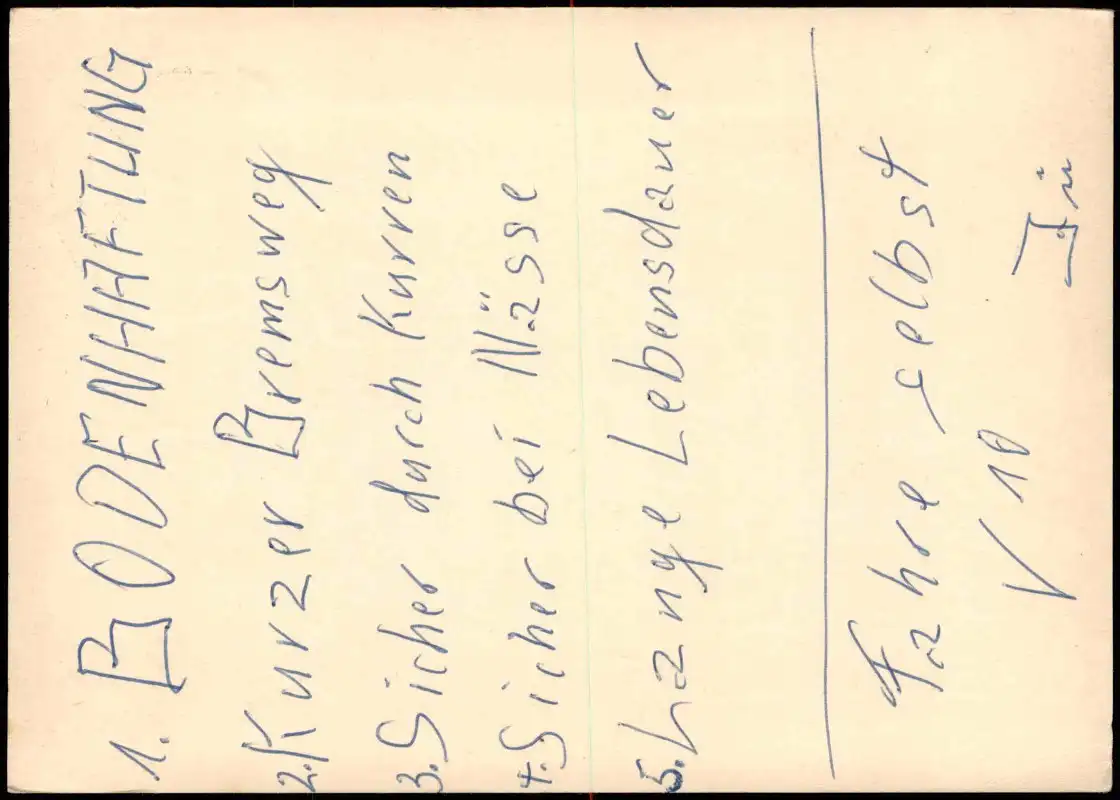 1. BODENHAFTUNG
2. Kurzer Bremsweg
3. Sicher durch Kurven
4. Sicher bei Nässe
5. Lange Lebensdauer
Fahre selbst
V 10